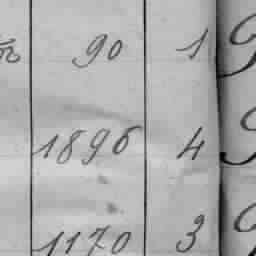 90 1
1896 4
1170 3